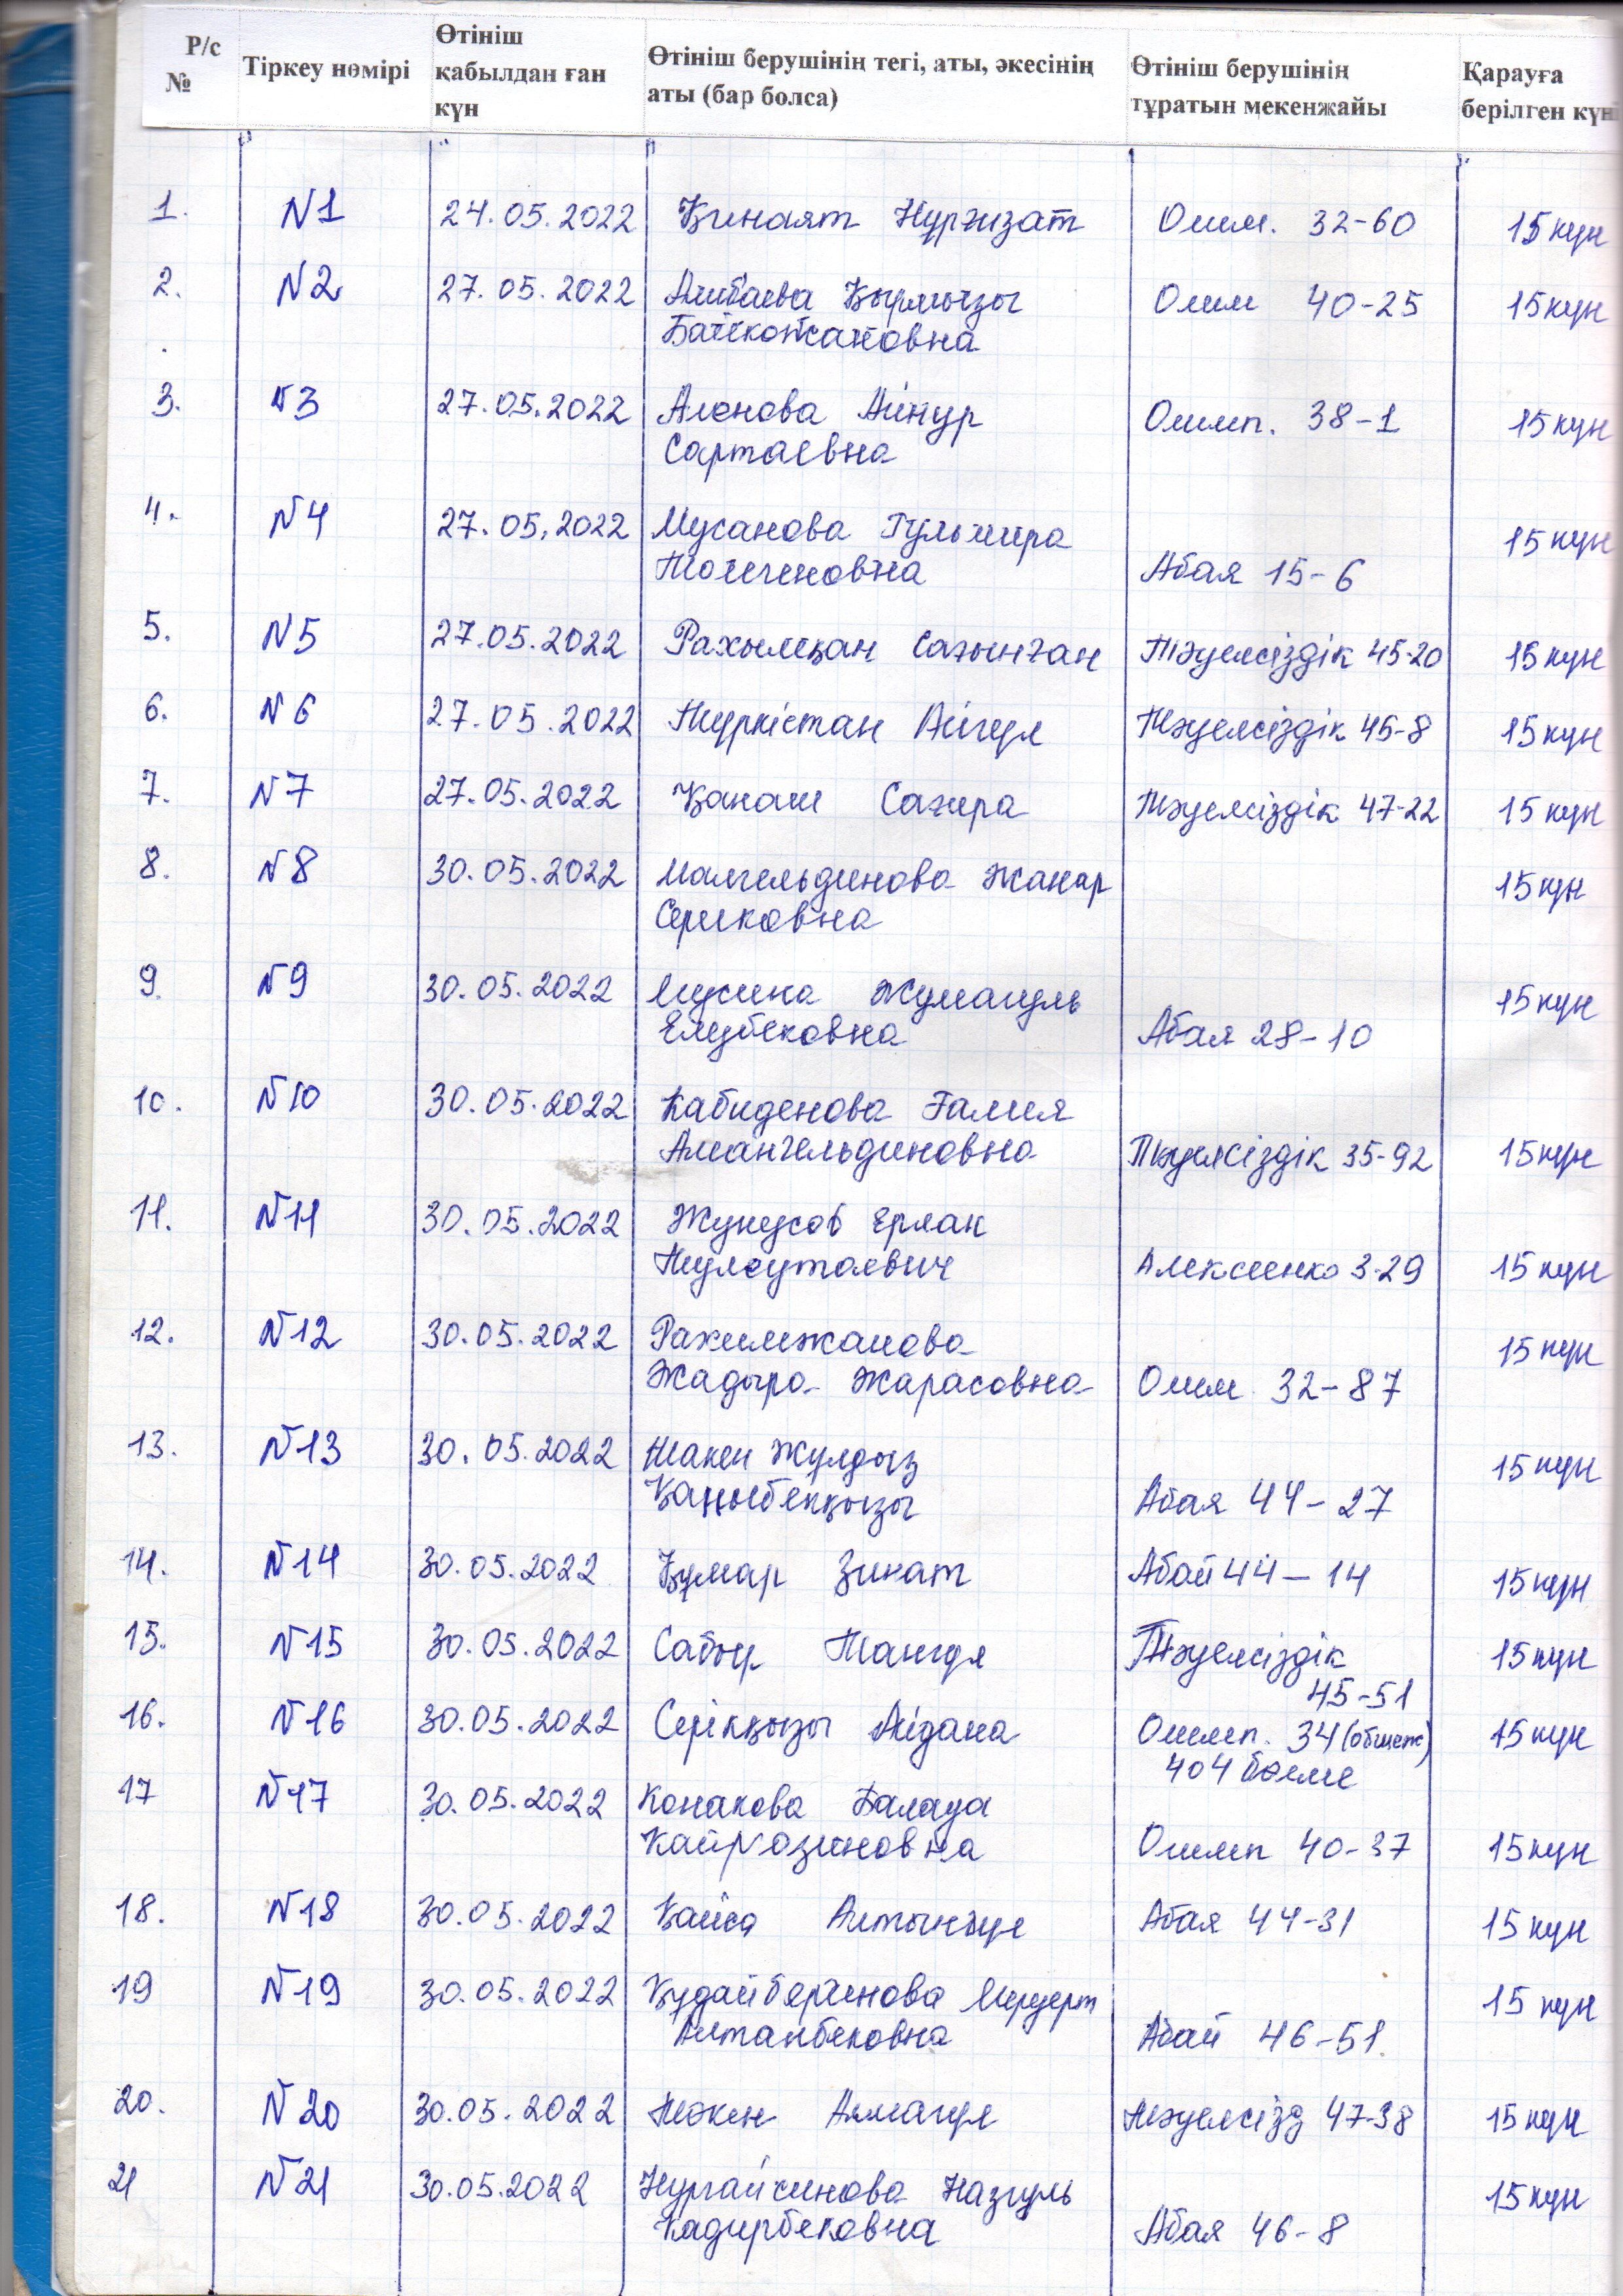 Р/с № Тіркеу нөмірі Өтініш қабылдан ған күн Өтініш берушінің тегі, аты, әкесінің аты (бар болса) Өтініш берушінің тұратын мекенжайы Қарауға берілген күн
1. N1 24.05.2022 Қинаят Нұргизат Олим. 32-60 15 күн
2. N2 27.05.2022 Алибаева Қырмызы Олим 40-25 15 күн
3. N3 27.05.2022 Аленова Айнур Олимп. 38-1 15 күн
Сартаевна
4. N4 27.05.2022 Мусанова Гульмира 15 күн
Толегеновна Абая 15-6
5. N5 27.05.2022 Рахылқан Сағынған Тәуелсіздік 45-20 15 күн
6. N6 27.05.2022 Түркістан Айгүл Тәуелсіздік 45-8 15 күн
7. N7 27.05.2022 Қанаш Сағира Тәуелсіздік 47-22 15 күн
8. N8 30.05.2022 Малгельдинова Жанар 15 күн
Сериковна
9. N9 30.05.2022 Мусина Жумагуль 15 күн
Елубековна Абая 28-10
10. N10 30.05.2022 Кабиденова Галия
Амангельдиновна Тәуелсіздік 35-92 15 күн
11. N11 30.05.2022 Жунусов Ерлан
Тулеутаевич Алексеенко 3-29 15 күн
12. N12 30.05.2022 Рахимжанова 15 күн
Жадыра Жарасовна Олим 32-87
13. N13 30.05.2022 Жұлдыз 15 күн
Абая 44-27
14. N14 30.05.2022 Құмар Зинат Абай 44-14 15 күн
15. N15 30.05.2022 Сабыр Таңгүл Тәуелсіздік 15 күн
45-51
16. N16 30.05.2022 Серікқызы Айдана Олимп. 34 (общеж) 15 күн
404 бөлме
17 N17 30.05.2022 Конакова Балауса
Олимп 40-37 15 күн
18. N18 30.05.2022 Қайса Алтынгүл Абая 44-31 15 күн
19 N19 30.05.2022 Құдайбергинова Меруерт 15 күн
Алтанбековна Абай 46-51.
20. N20 30.05.2022 Алмагүл Тәуелсізд 47-38 15 күн
21 N21 30.05.2022 Нургайсинова Назгуль 15 күн
Кадирбековна Абая 46-8